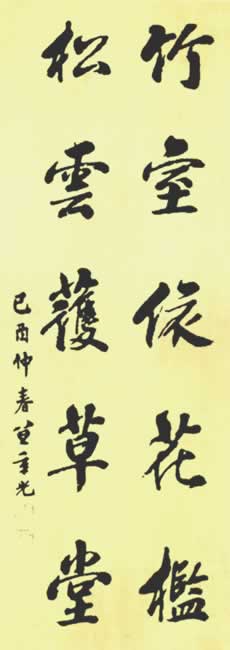 竹室依花檻
松雲護草堂
己酉仲春笪重光